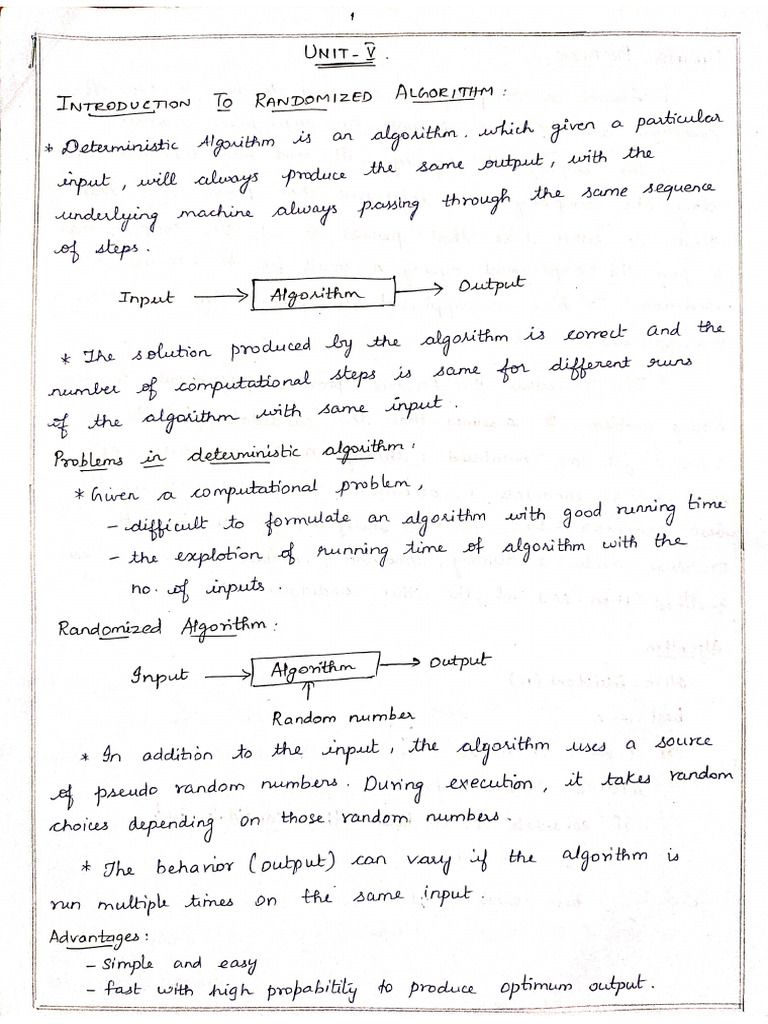 1
UNIT-V.
INTRODUCTION TO RANDOMIZED ALGORITHM:
* Deterministic Algorithm is an algorithm. which given a particular
input, will always produce the same output, with the
underlying machine always passing through the same sequence
of steps.
Input → Algorithm → Output
* The solution produced by the algorithm is correct and the
number of computational steps is same for different runs
of the algorithm with same input.
Problems in deterministic algorithm:
* Given a computational problem,
- difficult to formulate an algorithm with good running time
- the explotion of running time of algorithm with the
no. of inputs.
Randomized Algorithm:
Input → Algorithm → Output
↑
Random number
* In addition to the input, the algorithm uses a source
of pseudo random numbers. During execution, it takes random
choices depending on those random numbers.
* The behavior (output) can vary if the algorithm is
run multiple times on the same input.
Advantages:
- Simple and easy
- fast with high probability to produce optimum output.